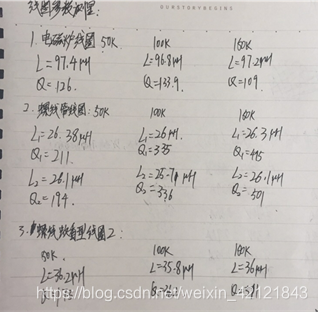 线圈参数测量:
OURSTORYBEGINS
1. 电磁炉线圈 50K 100K 150K
L=97.4μH L=96.8μH L=97.2μH
Q=126. Q=133.9. Q=109.
2. 螺线管线圈: 50K 100K 150K
L₁=26.38μH L₁=26μH. L₁=26.3μH.
Q₁=211. Q₁=335 Q₁=445
L₂=26.1μH L₂=25.7μH L₂=26.1μH
Q₂=194. Q₂=336 Q₂=501
3. 线圈2:
50K. 100K 150K
L=36.2μH L=35.8μH L=36μH
https://blog.csdn.net/weixin_42121843